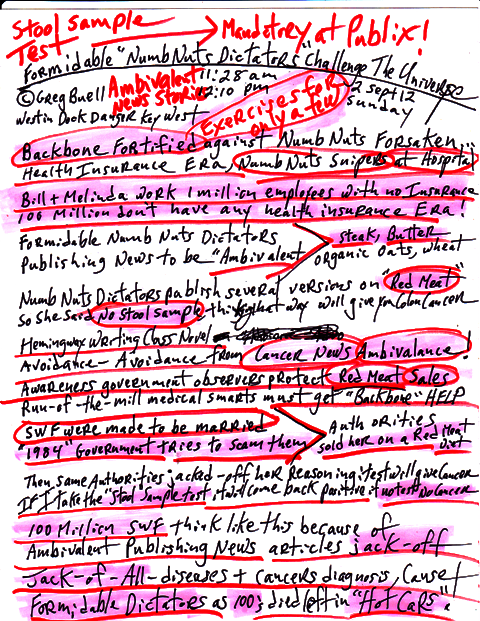 Stool Sample → Mandatory at Publix!
Test
Formidable "Numb Nuts Dictators" Challenge The Universe
©Greg Buell Ambivalent 11:28 am
News Stories 12:10 pm
Exercises for only a few
2 Sept 12
Sunday
Westin Dock Danger Key West
Backbone Fortified against Numb Nuts Forsaken,
Health Insurance Era, Numb Nuts Snipers at Hospital
Bill + Melinda work 1 million employees with no Insurance
100 Million don't have any health insurance Era!
Formidable Numb Nuts Dictators
Publishing News to be "Ambivalent"
Steak, Butter
organic Oats, wheat
Numb Nuts Dictators publish several versions on "Red Meat"
So She Said No Stool Sample way will give you Colon Cancer
Hemingway Writing Class Novel
Avoidance - Avoidance from Cancer News Ambivalance!
Awareness government observers protect Red Meat Sales
Run-of-the-mill medical smarts must get "Backbone" HELP
SWF were made to be married
"1984" Government tries to scam them
Authorities
sold her on a Red Meat
Diet
Then same Authorities jacked-off her Reasoning; test will give Cancer
IF I take the "Stool Sample test it will come back positive if no test No Cancer
100 Million SWF think like this because of
Ambivalent Publishing News articles jack-off
jack-of-All-diseases + cancers diagnosis, Cause
Formidable Dictators as 100's died left in "Hot Cars"